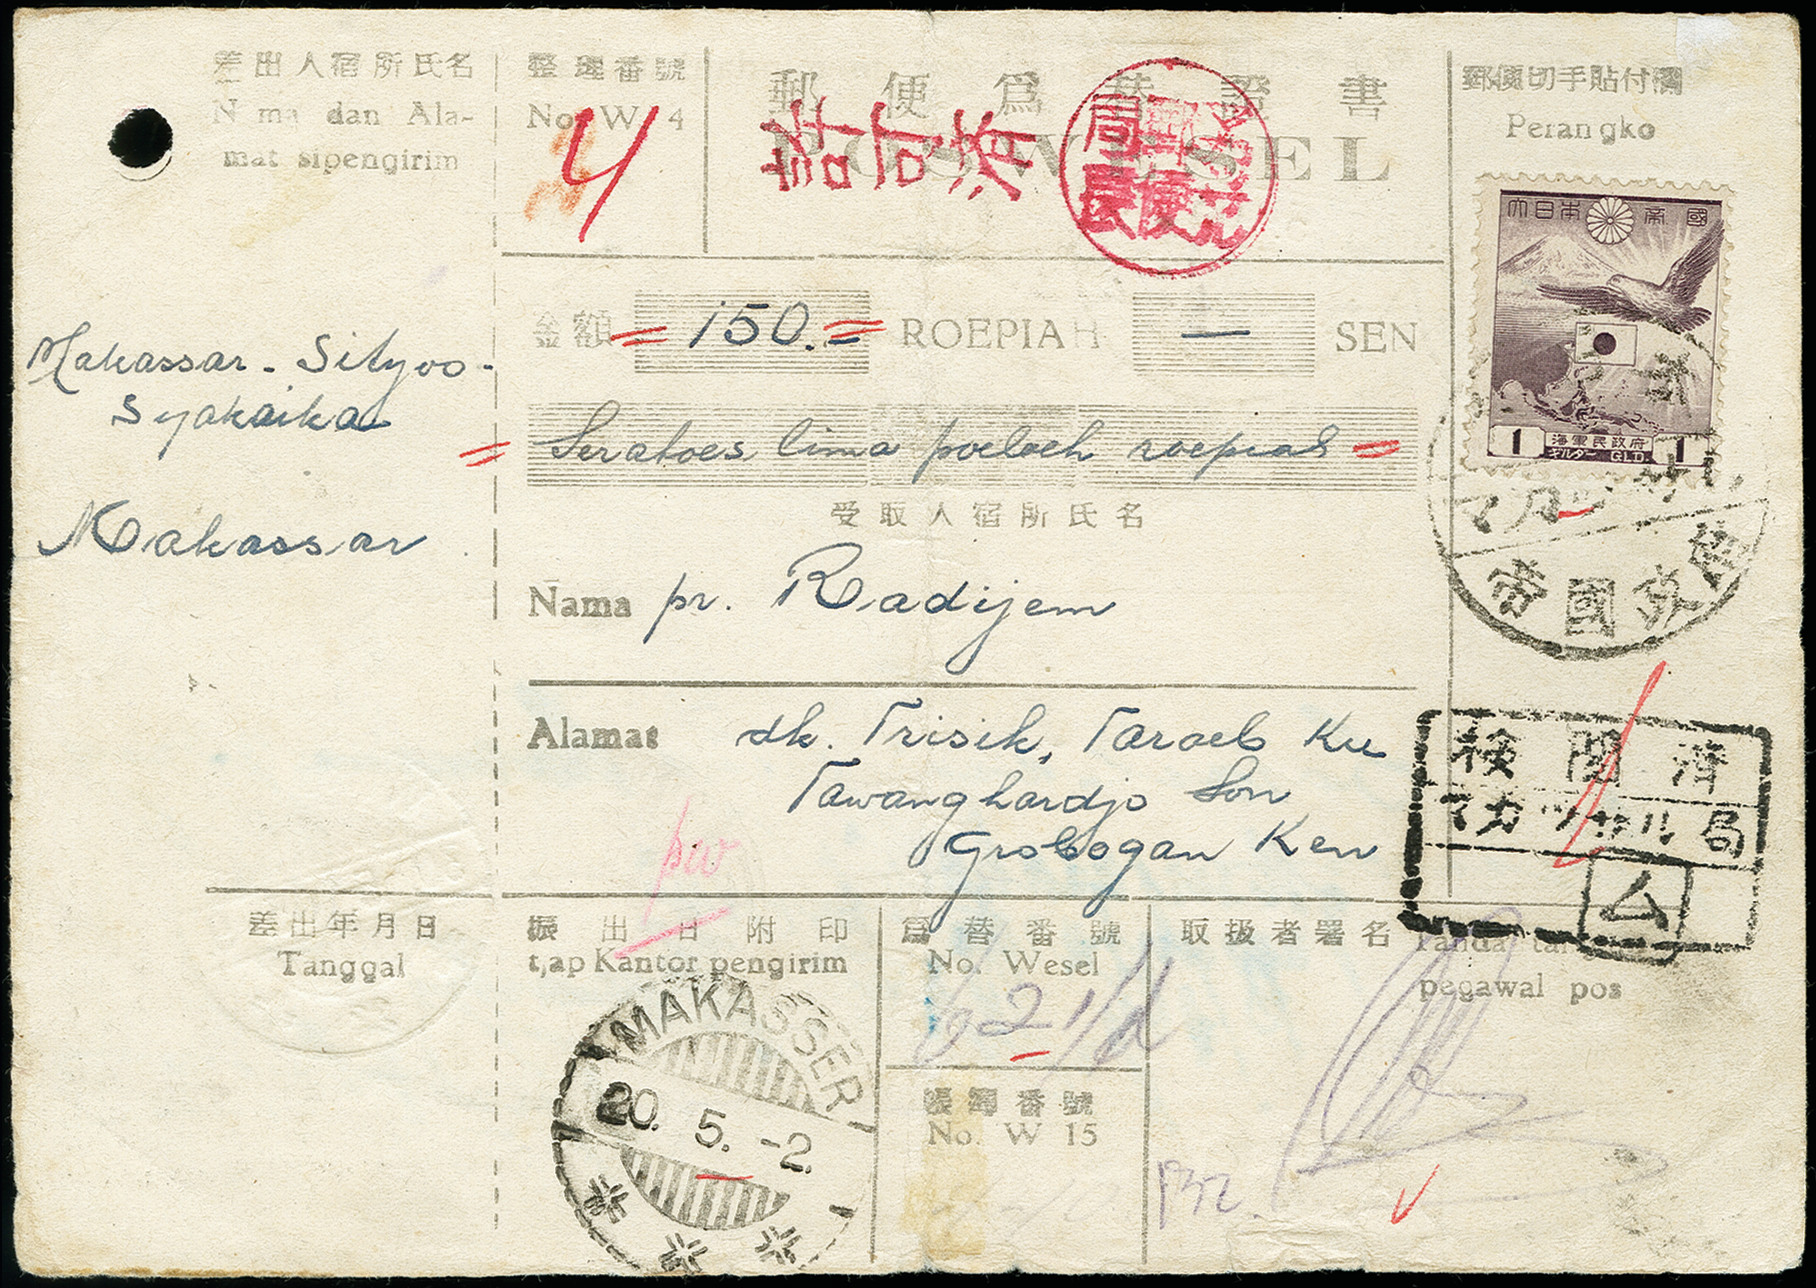 差出人宿所氏名
N ma dan Ala-
mat sipengirim
Makassar - Sityoo-
Syakaika
Makassar
整理番號
No. W 4
4
郵便爲替證書
POSWESEL
郵便切手貼付欄
Perangko
大日本帝國
1 海軍民政府 1
ギルダー GLD.
金額 = 150. = ROEPIAH — SEN
= Seratoes lima poeloeh roepiah =
受取人宿所氏名
Nama pr. Radijem
Alamat dk. Trisik, Taroeb Ku
Tawanghardjo Son
Grobogan Ken
pw
帝國政府
検閲済
マカッサル局
ム
差出年月日
Tanggal
振出日附印
t,ap Kantor pengirim
MAKASSER
20. 5. -2.
爲替番號
No. Wesel
帳簿番號
No. W 15
取扱者署名
Tanda tang
pegawai pos